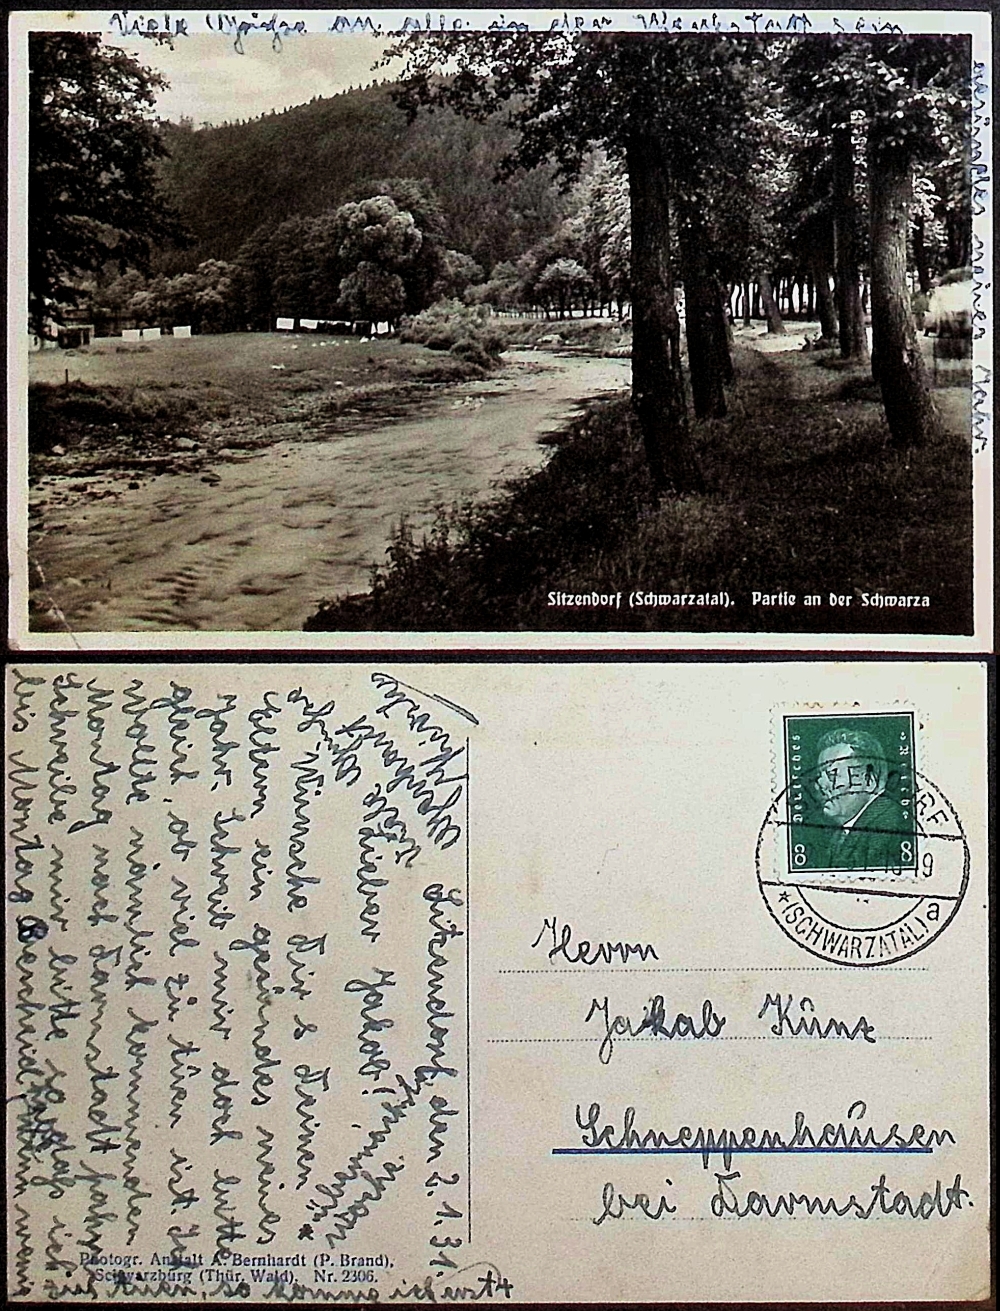 Viele Grüße an alle in der Werkstatt sein
meiner Jahr.
Sitzendorf (Schwarzatal). Partie an der Schwarza
Sitzendorf, den 2. 1. 31.
Lieber Jakob!
Wünsche Dir & Deinen
Eltern ein gesundes neues
Jahr. Schreib mir doch bitte
gleich, ob viel zu tuen ist. Ich
wollte nämlich kommenden
Montag nach Darmstadt fahren
Schreibe mir bitte so, daß ich
bis Montag Bescheid
viel tuen, so komme ich erst
Viele Grüße
Photogr. Anstalt A. Bernhardt (P. Brand),
Schwarzburg (Thür. Wald). Nr. 2306.
Deutsches Reich
8 8
SITZENDORF
19
*(SCHWARZATAL) a
Herrn
Jakob Kunz
Schneppenhausen
bei Darmstadt.